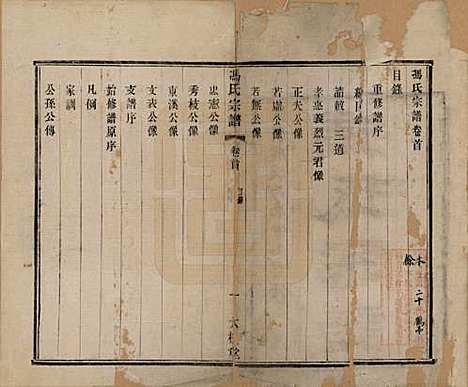 馮氏宗譜卷首
目錄
重修譜序
誥敕 三道
孝惠義烈元君像
正夫公像
若虛公像
若無公像
馮氏宗譜 卷首 一
忠憲公像
秀枝公像
東溪公像
文表公像
支譜序
始修譜原序
凡例
家訓
公孫公傳